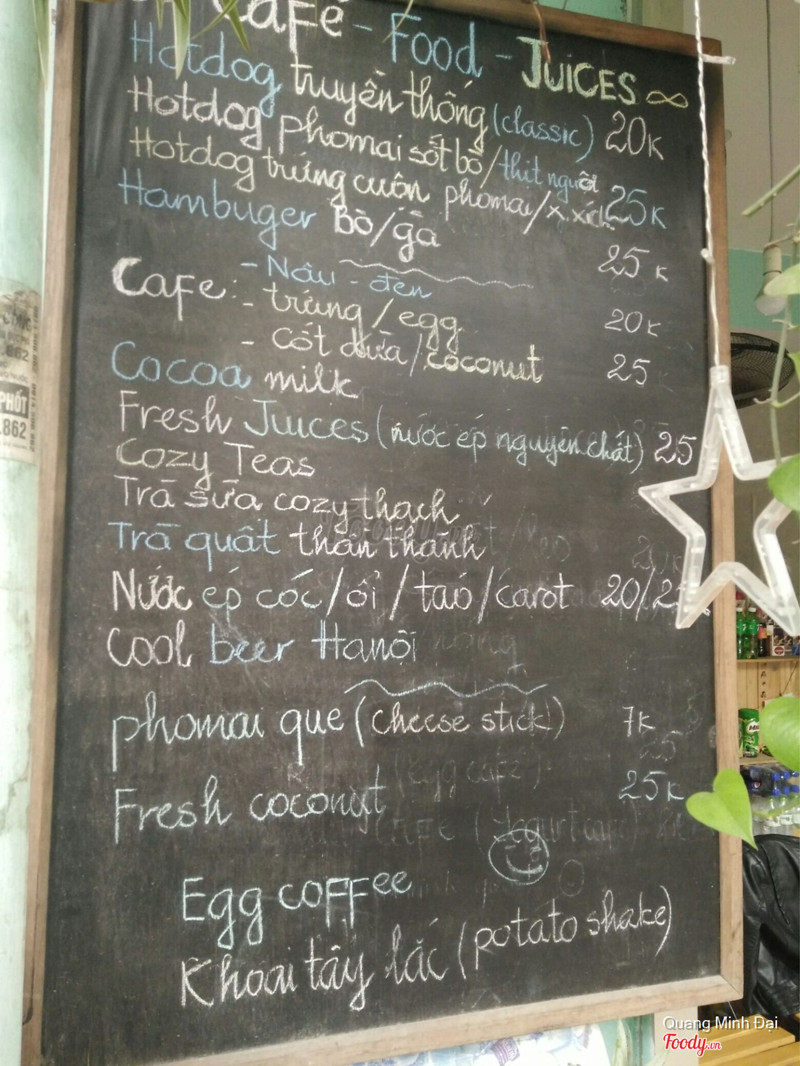 Café - Food - JUICES ∞
Hotdog truyền thống (classic) 20K
Hotdog phomai sốt bò/thịt nguội
Hotdog trứng cuộn phomai/x.xích 25K
Hambuger bò/gà 25K
Cafe: - Nâu - đen
- trứng/egg 20K
- Cốt dừa/coconut 25
Cocoa milk
Fresh Juices (nước ép nguyên chất) 25
Cozy Teas
Trà sữa cozy thạch
Trà quất thần thánh
Nước ép cóc/ổi/táo/carot 20/2
Cool beer Hanội
phomai que (cheese stick!) 7K
Fresh coconut 25K
Egg coffee
Khoai tây lắc (potato shake)
PHỐT
.862
Quang Minh Đại
Foody.vn